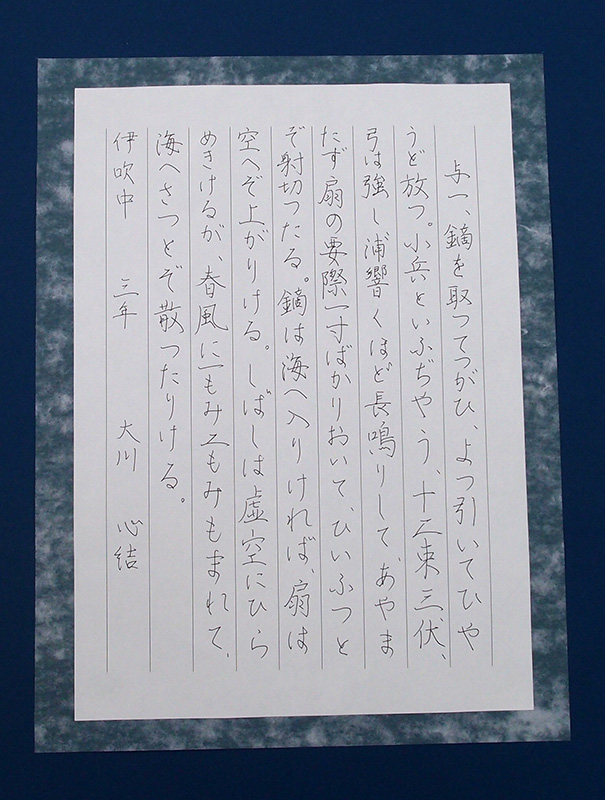 与一、鏑を取つてつがひ、よつ引いてひや
うど放つ。小兵といふぢやう、十二束三伏、
弓は強し浦響くほど長鳴りして、あやま
たず扇の要際一寸ばかりおいて、ひいふつと
ぞ射切つたる。鏑は海へ入りければ、扇は
空へぞ上がりける。しばしは虚空にひら
めきけるが、春風に一もみ二もみもまれて、
海へさつとぞ散つたりける。
伊吹中 三年 大川 心結